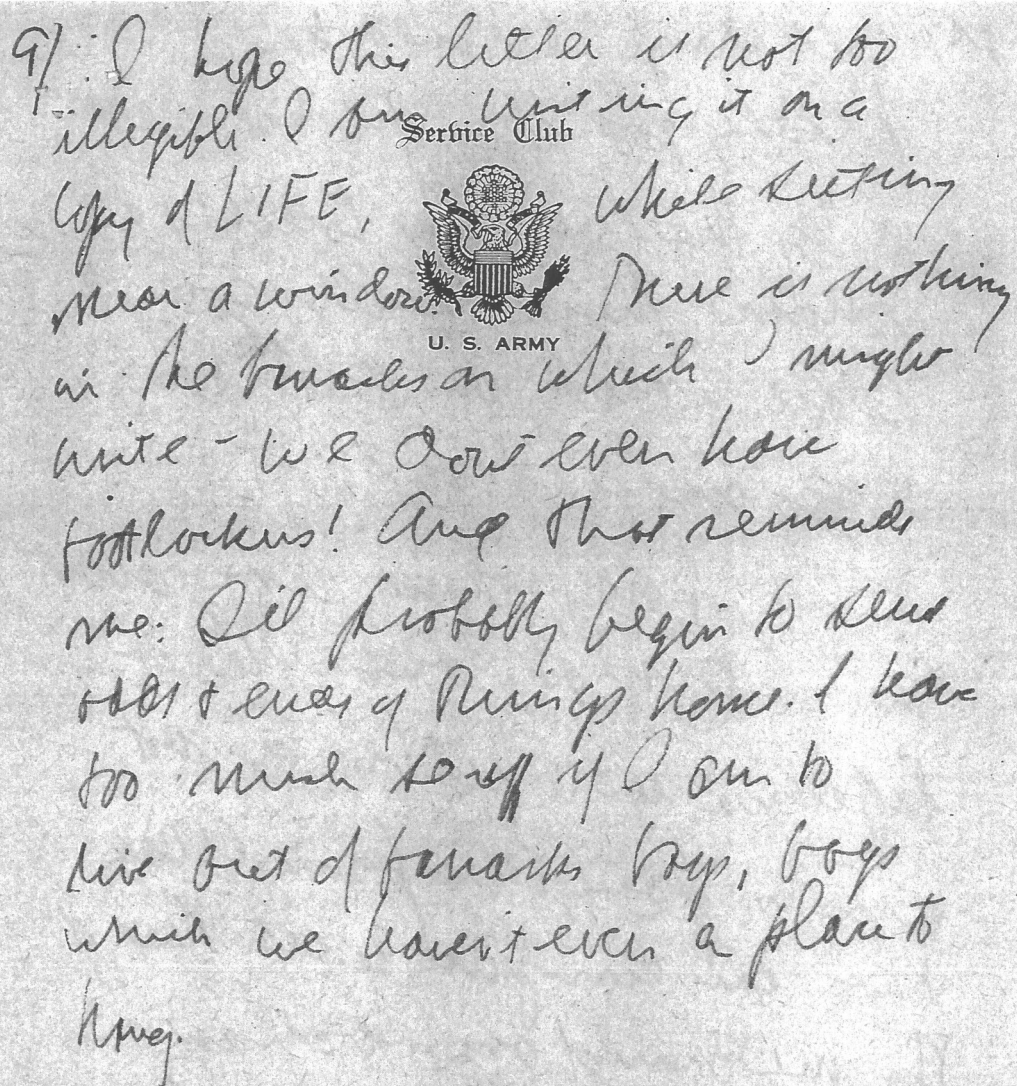 9/ I hope this letter is not too
illegible. I am writing it on a
Service Club
copy of LIFE, while sitting
near a window. There is nothing
U. S. ARMY
in the barracks on which I might
write - we don't even have
footlockers! And that reminds
me: I'll probably begin to send
odds & ends of things home. I have
too much stuff if I am to
live out of barracks bags, bags
which we haven't even a place to
hang.